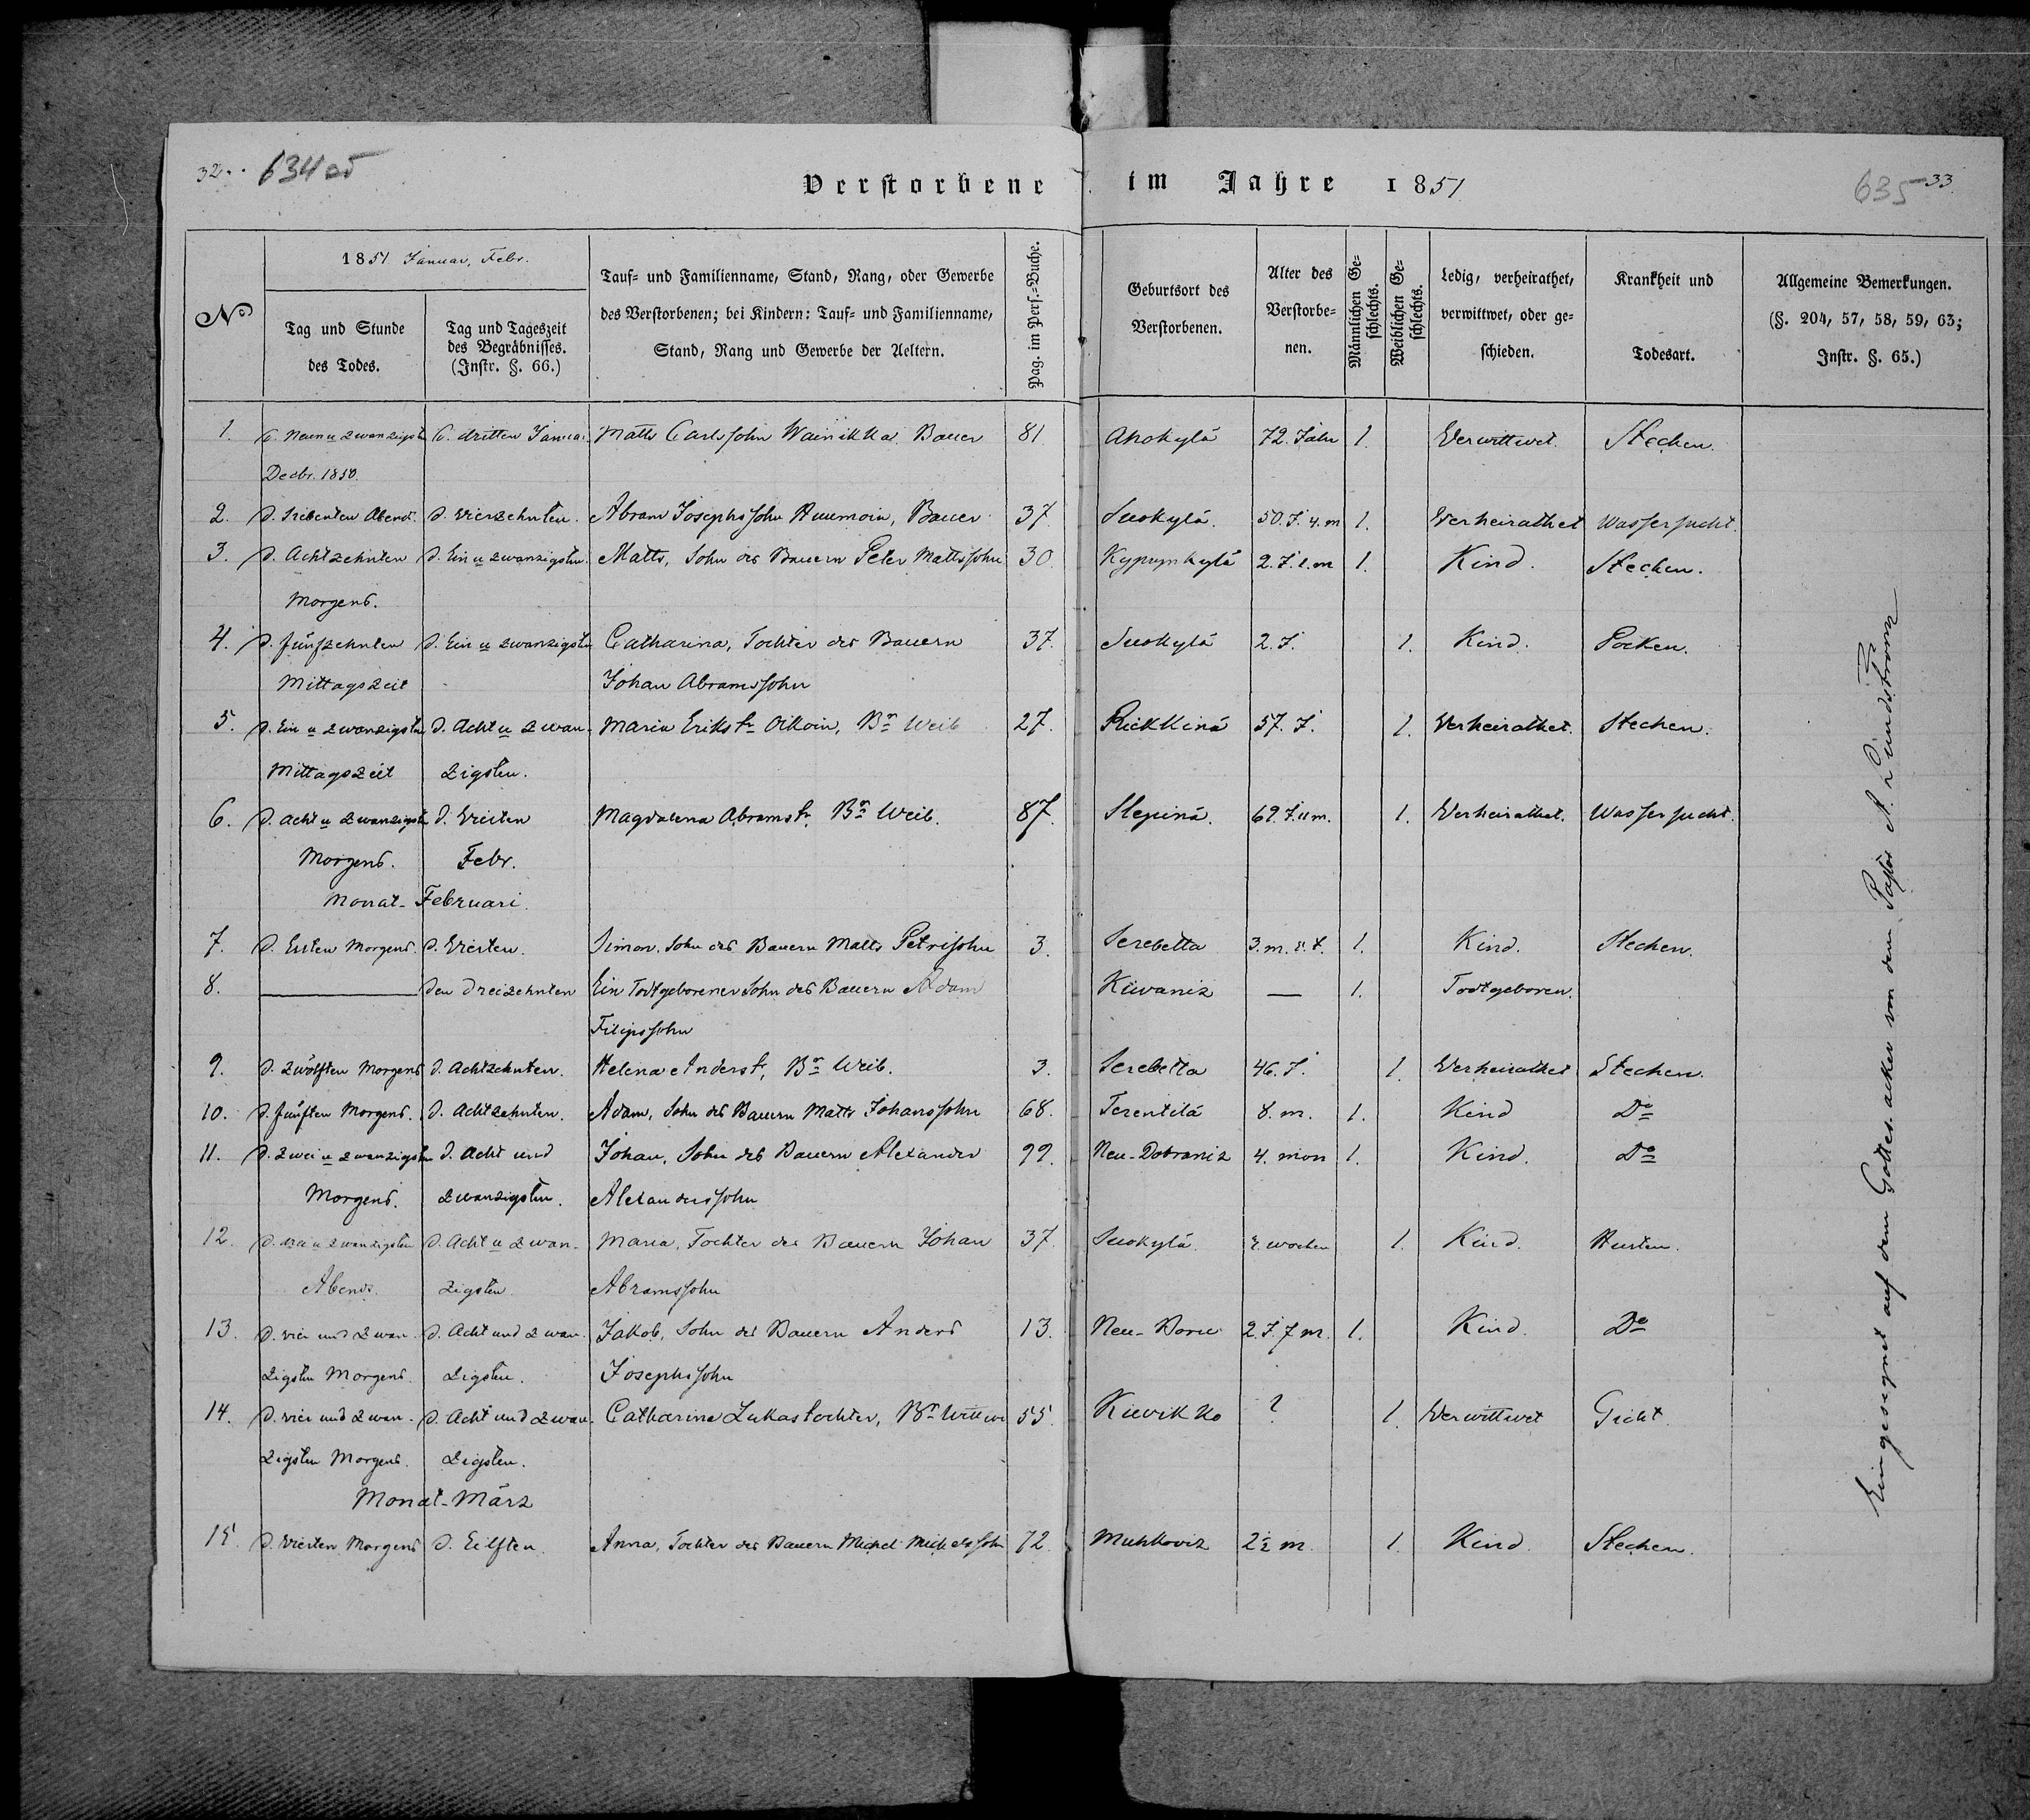 32.. 634 об
Verstorbene im Jahre 1851
635 33
No
1851 Januar, Febr.
Tag und Stunde des Todes.
Tag und Tageszeit des Begräbnisses. (Instr. §. 66.)
Tauf- und Familienname, Stand, Rang, oder Gewerbe des Verstorbenen; bei Kindern: Tauf- und Familienname, Stand, Rang und Gewerbe der Aeltern.
Pag. im Pers.-Buche.
Geburtsort des Verstorbenen.
Alter des Verstorbenen.
Männlichen Geschlechts.
Weiblichen Geschlechts.
Ledig, verheirathet, verwittwet, oder geschieden.
Krankheit und Todesart.
Allgemeine Bemerkungen. (§. 204, 57, 58, 59, 63; Instr. §. 65.)
1. d. Neun u zwanzigst d. dritten Januar Matts Carlssohn Wainikka Bauer 81. Ahokylä 72. Jahr 1. Verwittwet. Stechen.
Decbr. 1850.
2. d. Siebenten Abend. d. Vierzehnten. Abram Josephssohn Huumoin, Bauer 37. Suokylä. 50. J. 4. m 1. Verheirathet Wassersucht.
3. d. Achtzehnten d. Ein u zwanzigsten. Matts, Sohn des Bauern Peter Mattssohn 30. Kyprynkylä 2. J. 1. m 1. Kind. Stechen.
Morgens.
4. d. fünfzehnten d. Ein u zwanzigsten Catharina, Tochter des Bauern 37. Suokylä 2. J. 1. Kind. Pocken.
Mittagszeit Johan Abramssohn
5. d. Ein u zwanzigsten d. Acht u zwan- Maria Erikstr Oikoin, Brn Weib 27. Riekkinä 57. J. 1. Verheirathet. Stechen.
Mittagszeit zigsten.
6. d. Acht u zwanzigst d. Vierten Magdalena Abramstr. Brn Weib. 87. Slepinä. 1. Verheirathet. Wassersucht.
Morgens. Febr.
Monat-Februari.
7. d. Ersten Morgens. d. Vierten. Simon, Sohn des Bauern Matts Petrisohn 3. Serebetta 1. Kind. Stechen.
8. — den Dreizehnten Ein Todtgeborener Sohn des Bauern Adam Kiivaniz — 1. Todtgeboren.
Filipssohn
9. d. zwölften Morgens d. Achtzehnten. Helena Anderstr, Brn Weib. 3. Serebetta 46. J. 1. Verheirathet Stechen.
10. d. fünften Morgens. d. Achtzehnten. Adam, Sohn des Bauern Matts Johanssohn 68. Terentilä 8. m. 1. Kind Do
11. d. zwei u zwanzigsten d. Acht und Johan, Sohn des Bauern Alexander 99. Neu-Dobraniz 4. mon 1. Kind. Do
Morgens. zwanzigsten. Alexanderssohn
12. d. drei u zwanzigsten d. Acht u zwan- Maria, Tochter des Bauern Johan 37. Suokylä. wochen 1. Kind. Husten.
Abends. zigsten. Abramssohn
13. d. vier und zwan- d. Acht und zwan- Jakob, Sohn des Bauern Anders 13. Neu- 2. J. 7 m. 1. Kind. Do
zigsten Morgens. zigsten. Josephssohn
14. d. vier und zwan- d. Acht und zwan- Catharina Lukastochter, Brn Wittwe 55. Kuvikko ? 1. Verwittwet Gicht.
zigsten Morgens. zigsten.
Monat-März
15. d. Vierten Morgens d. Eilften. Anna, Tochter des Bauern Michel Michelssohn 72. Muhkoviz 2½ m. 1. Kind. Stechen.
Eingesegnet auf dem Gottes.acker von dem Pastor A. Lundström